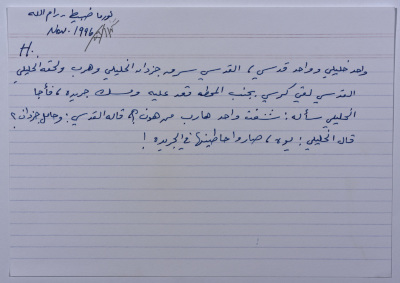 نورما خبيط - رام الله
Nov. 1996
H.
واحد خليلي و واحد قدسي، القدسي سرق جزدان الخليلي وهرب ولحقه الخليلي
القدسي لقي كرسي بجنب المحطه قعد عليه ومسك جريده، فأجا
الخليلي سأله: شفت واحد هارب من هون؟ قاله القدسي: وحامل جزدان؟
قال الخليلي: يوه، صاروا حاطينها في الجريده!